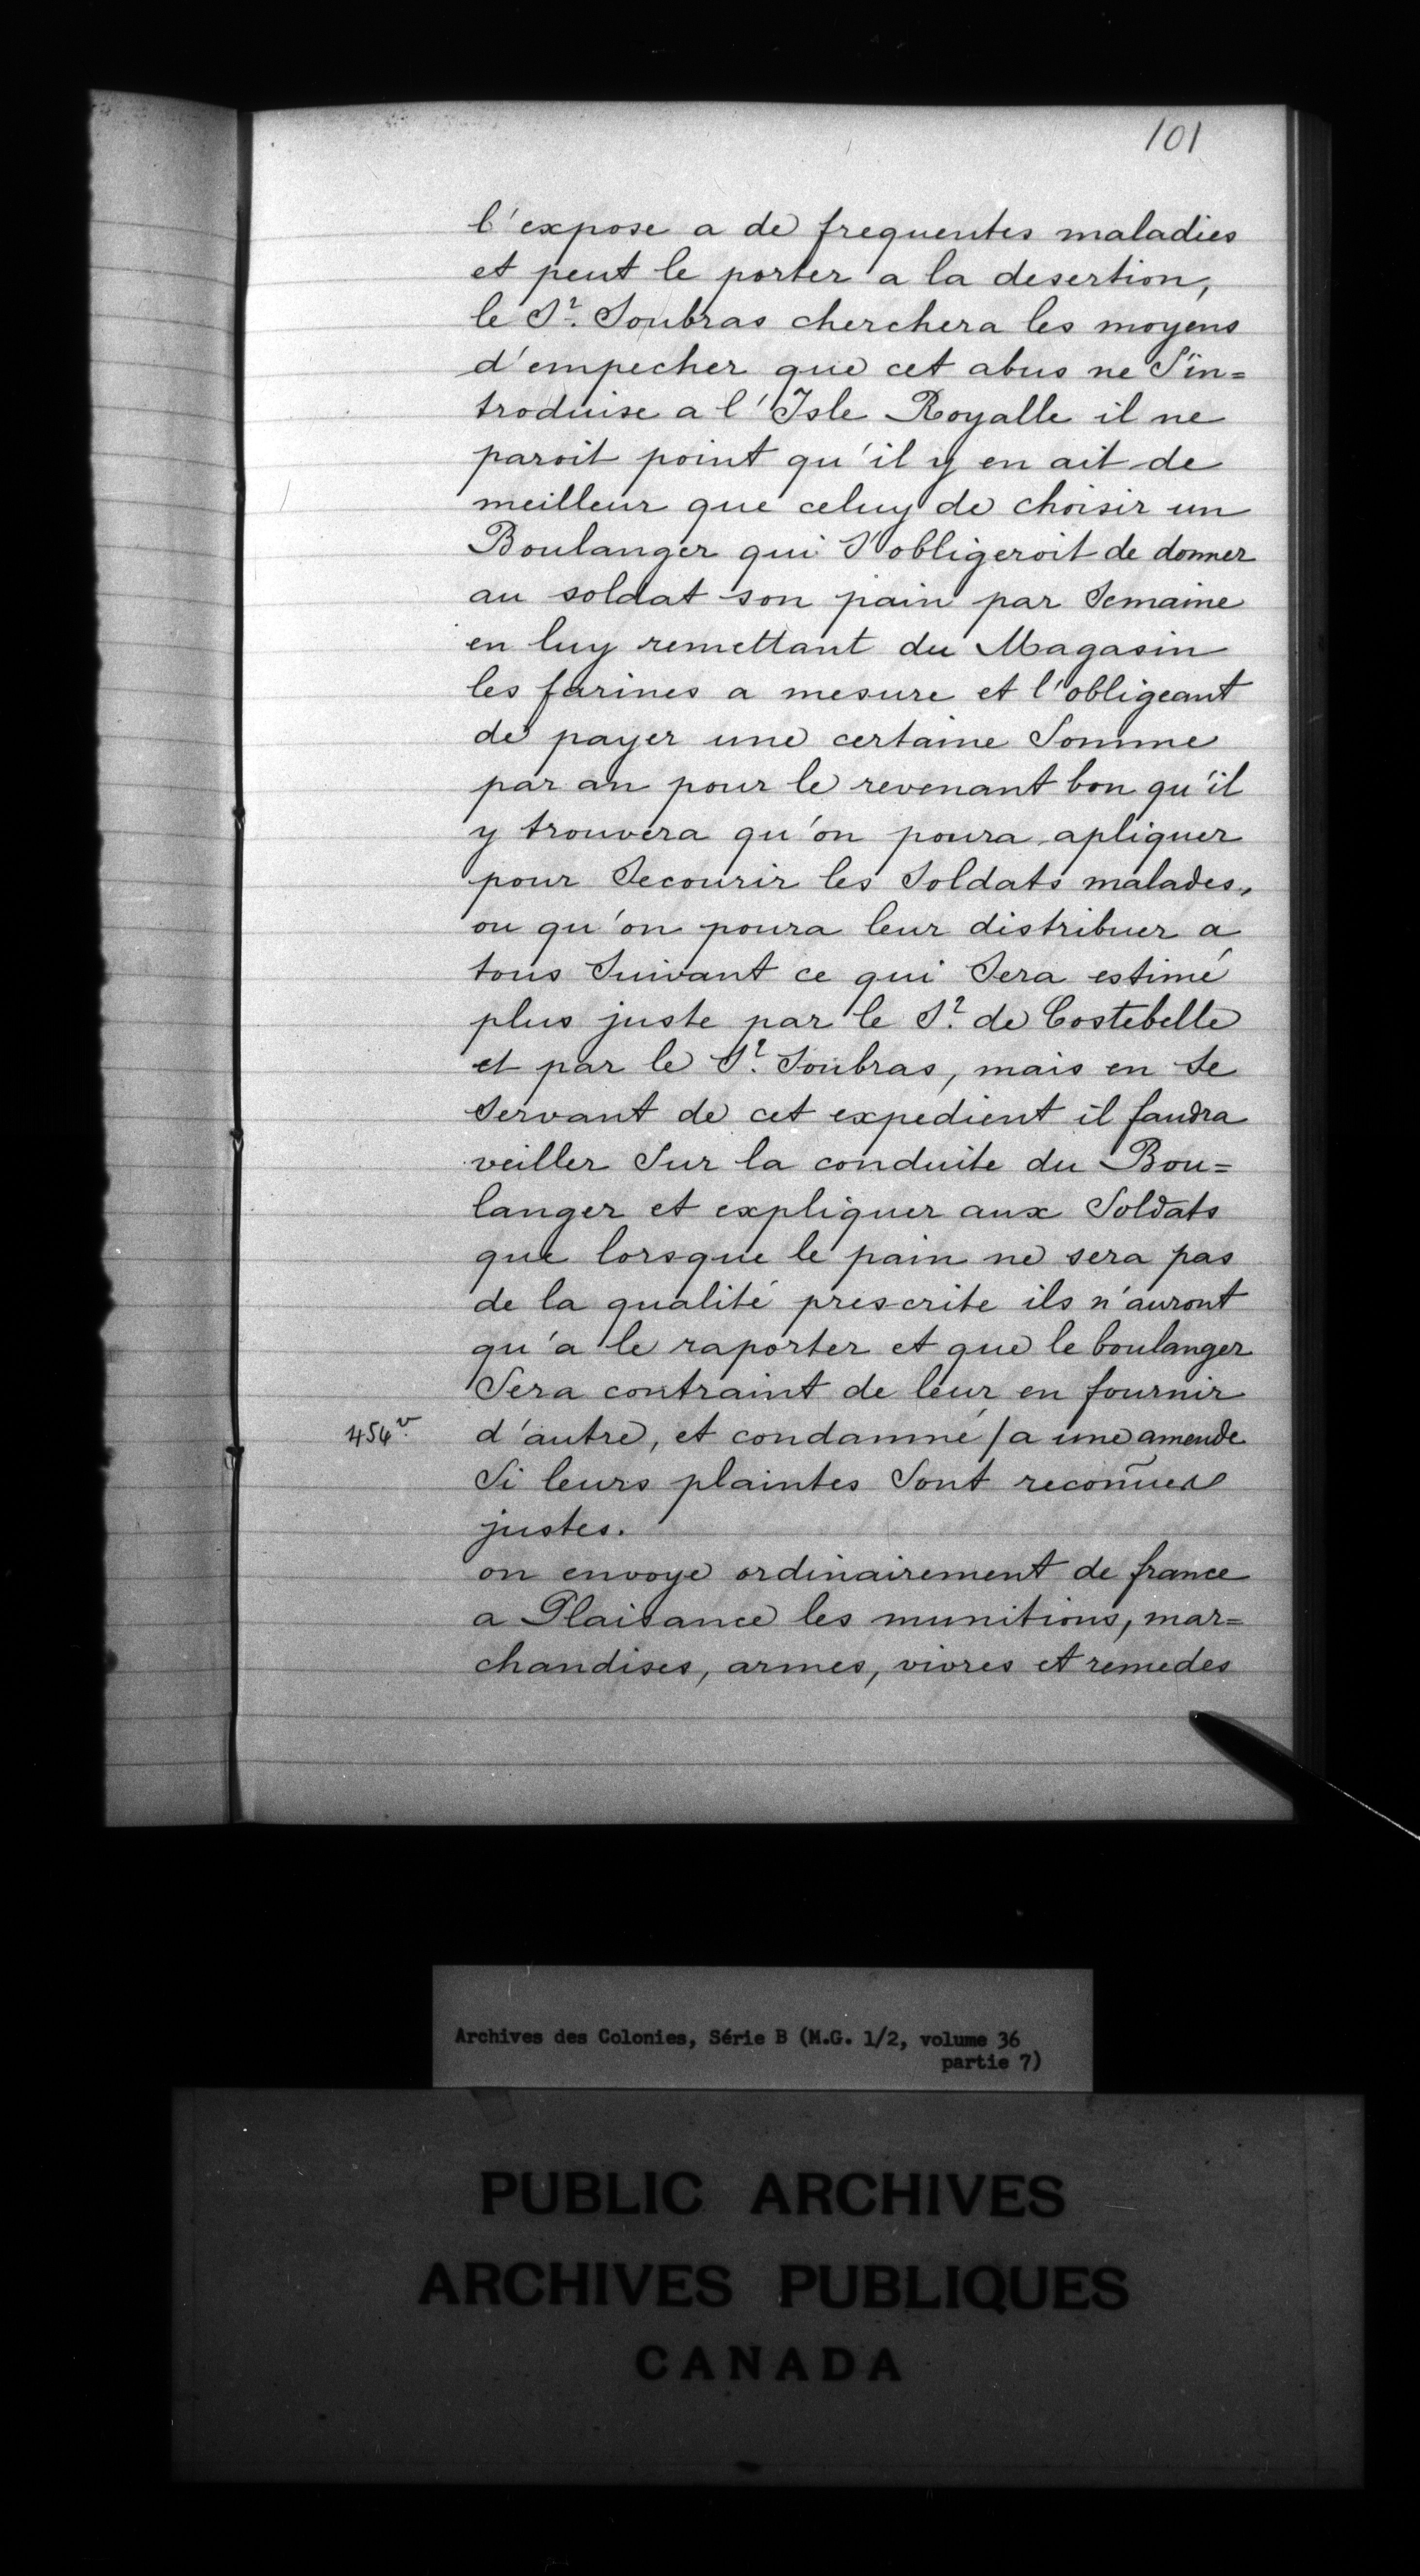 101
l'expose a de frequentes maladies
et peut le porter a la desertion,
le Sr. Soubras cherchera les moyens
d'empecher que cet abus ne S'in=
troduise a l'Isle Royalle il ne
paroit point qu'il y en ait de
meilleur que celuy de choisir un
Boulanger qui S'obligeroit de donner
au soldat son pain par Semaine
en luy remettant du Magasin
les farines a mesure et l'obligeant
de payer une certaine Somme
par an pour le revenant bon qu'il
y trouvera qu'on poura apliquer
pour Secourir les Soldats malades,
ou qu'on poura leur distribuer a
tous Suivant ce qui Sera estimé
plus juste par le Sr. de Costebelle
et par le Sr. Soubras, mais en Se
Servant de cet expedient il faudra
veiller Sur la conduite du Bou=
langer et expliquer aux Soldats
que lorsque le pain ne sera pas
de la qualité prescrite ils n'auront
qu'a le raporter et que le boulanger
Sera contraint de leur en fournir
454v. d'autre, et condamné / a une amende
Si leurs plaintes Sont recoñues
justes.
on envoye ordinairement de france
a Plaisance les munitions, mar=
chandises, armes, vivres et remedes
Archives des Colonies, Série B (M.G. 1/2, volume 36
partie 7)
PUBLIC ARCHIVES
ARCHIVES PUBLIQUES
CANADA